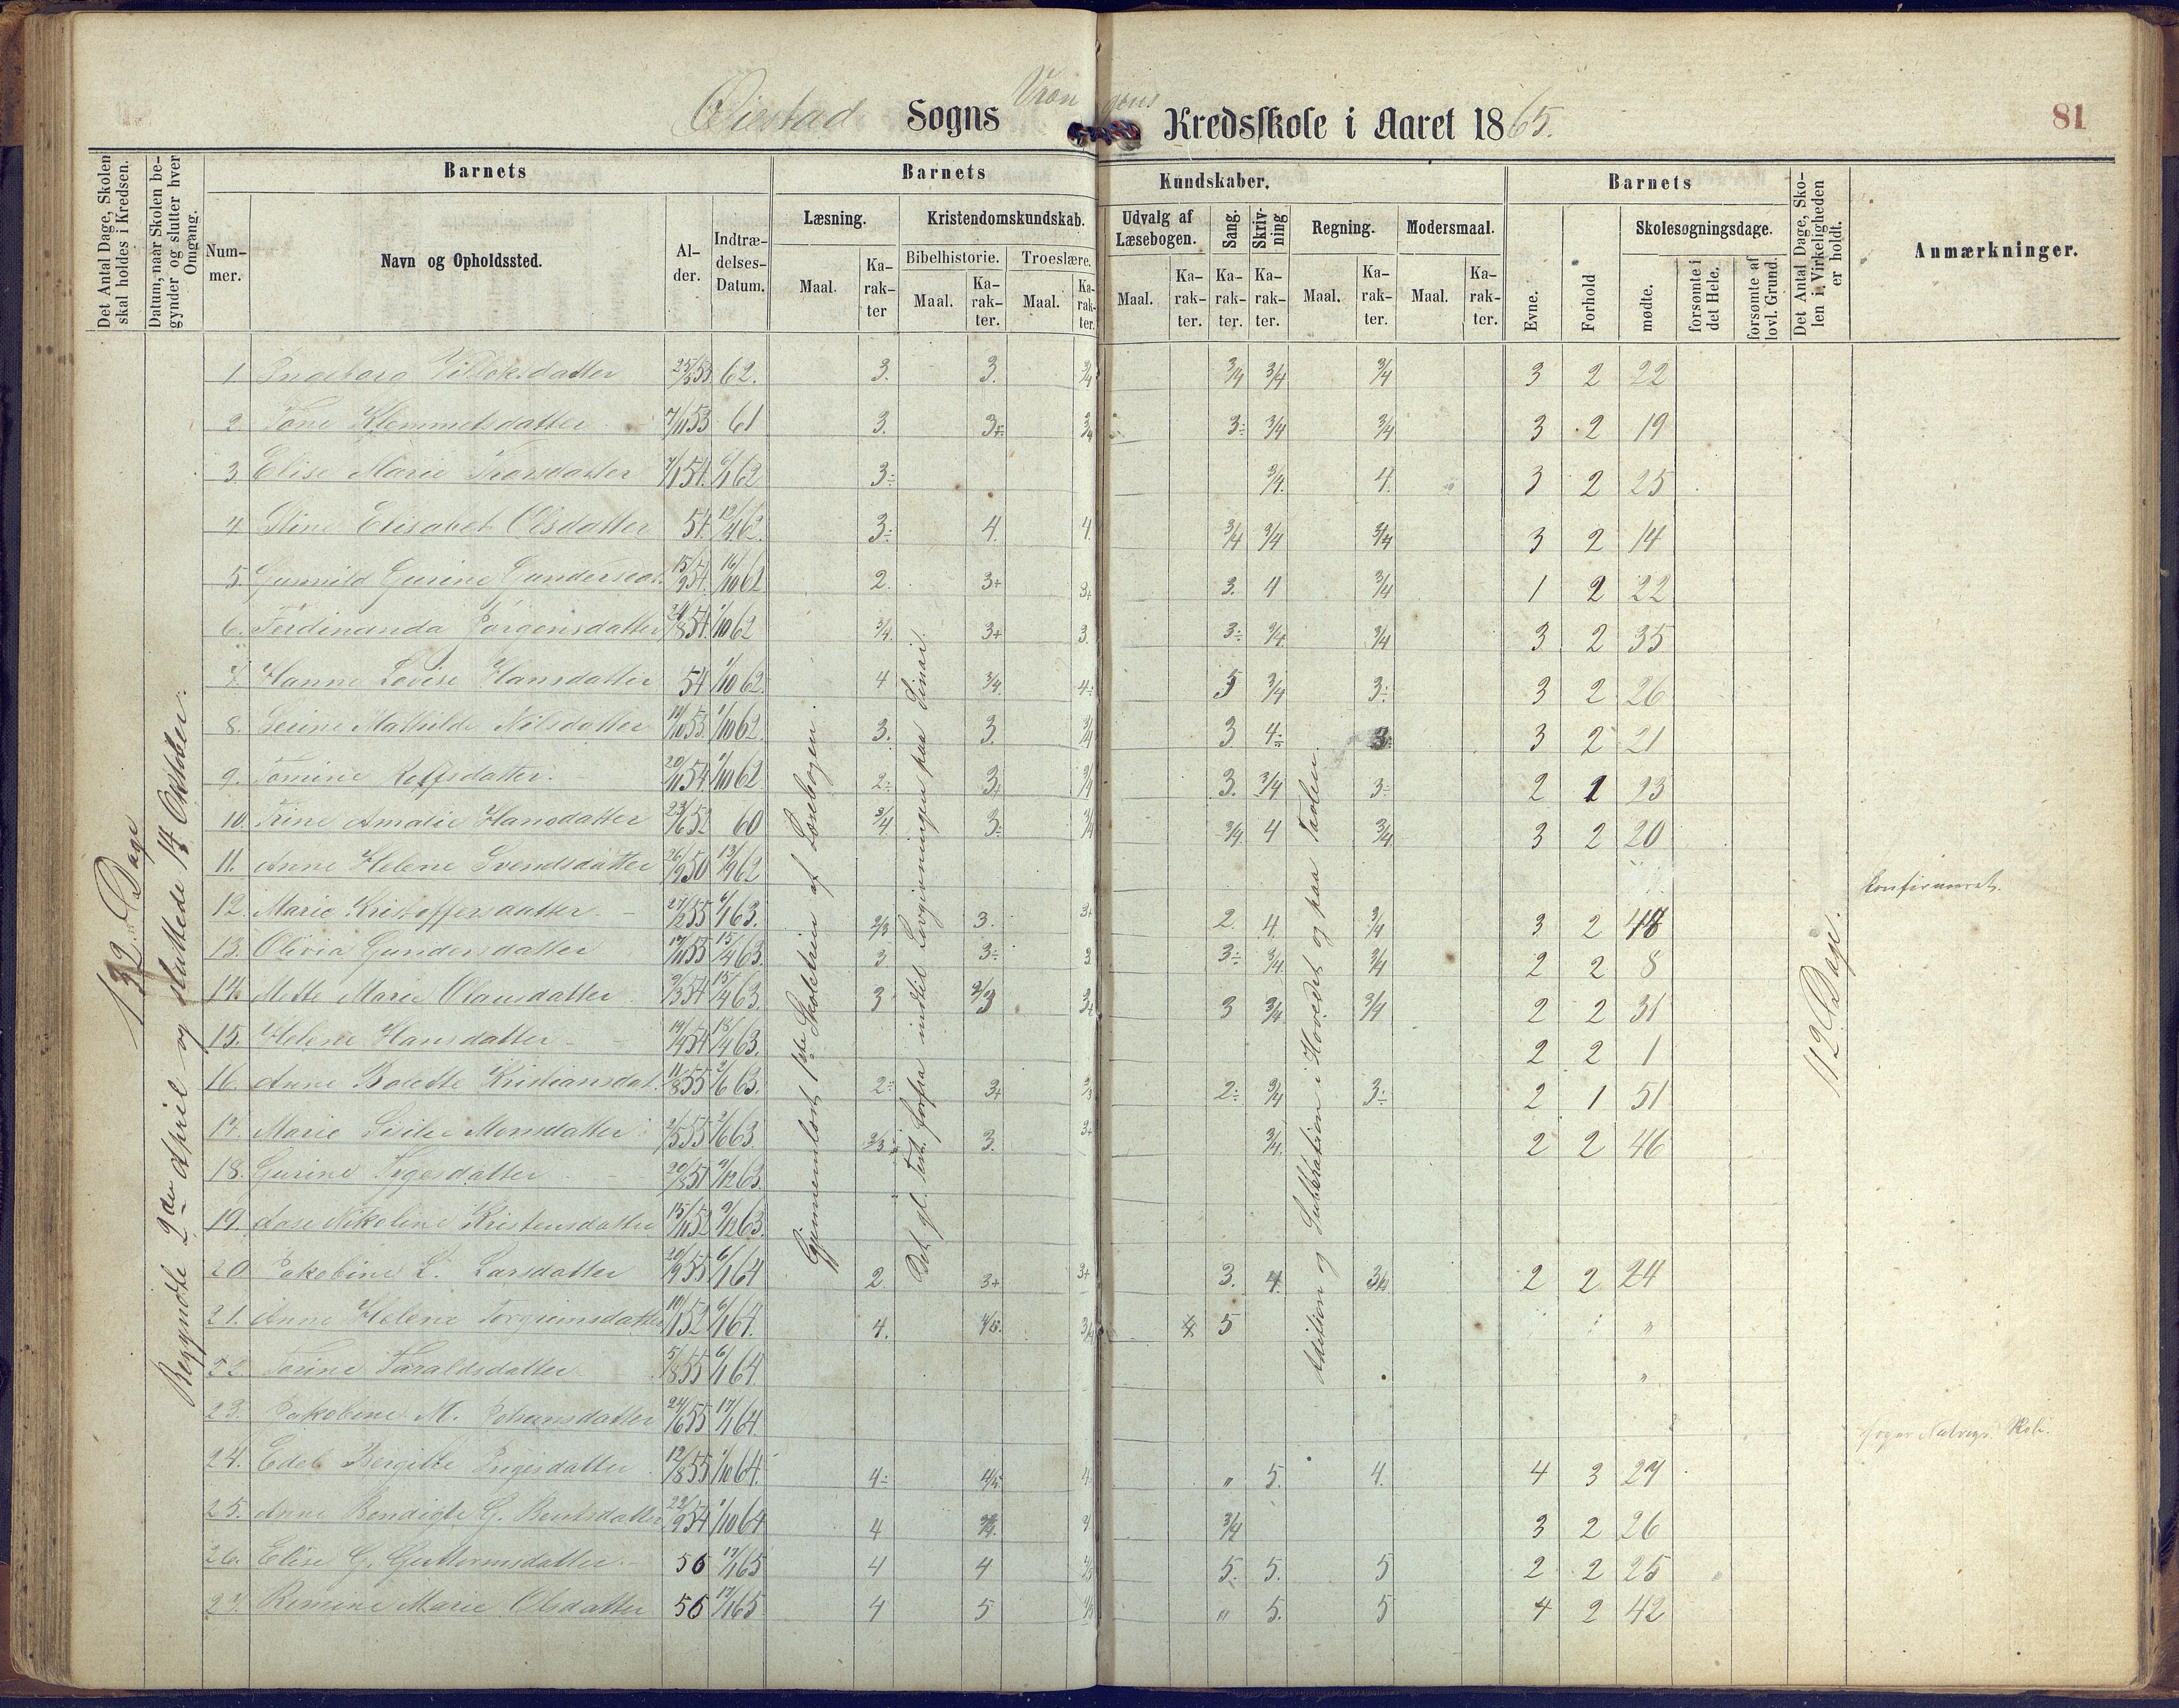 Øiestad Sogns Vrængens Kredsskole i Aaret 1865.
81
Det Antal Dage, Skolen skal holdes i Kredsen.
Datum, naar Skolen begynder og slutter hver Omgang.
Barnets
Nummer.
Navn og Opholdssted.
Alder.
Indtrædelses-Datum.
Barnets Kundskaber.
Læsning.
Maal.
Karakter
Kristendomskundskab.
Bibelhistorie.
Maal.
Karakter.
Troeslære.
Maal.
Karakter.
Udvalg af Læsebogen.
Maal.
Karakter.
Sang.
Karakter.
Skrivning
Karakter.
Regning.
Maal.
Karakter.
Modersmaal.
Maal.
Karakter.
Barnets
Evne.
Forhold
Skolesøgningsdage.
mødte.
forsømte i det Hele.
forsømte af lovl. Grund.
Det Antal Dage, Skolen i Virkeligheden er holdt.
Anmærkninger.
132 Dage
Begyndte 2den April og sluttede 14 Oktober.
Gjennemlæst 1ste Skoletrin af Læsebogen.
Det gl. Test. forfra indtil Lovgivningen paa Sinai.
Addition og Subtraktion i Hovedet og paa Tavlen.
112 Dage.
1. Ingeborg datter 25/5 53 62. 3. 3. 3/4 3/4 3/4 3/4 3 2 22
2. Tone Klemmetsdatter 7/11 53 61 3. 3+ 3/4 3÷ 3/4 3/4 3 2 19
3. Elise Marie Thorsdatter 7/1 54. 6/1 62 3÷ 3/4. 4. 3 2 25
4. Stine Elisabet Olsdatter 54. 12/4 62. 3÷ 4. 4. 3/4 3/4 3/4 3 2 14
5. Gunnild Gurine Gundersdat. 15/9 54. 16/10 62 2. 3+ 3+ 3. 4 3/4 1 2 22
6. Ferdinanda Jørgensdatter 24/8 54. 1/10 62 3/4. 3+ 3. 3÷ 3/4. 3/4 3 2 35
7. Hanne Lovise Hansdatter 54 1/10 62. 4 3/4. 4÷ 5 3/4 3÷ 3 2 26
8. Serine Mathilde Nilsdatter 14/10 53. 1/10 62. 3. 3. 3/4 3 4÷ 3 3 2 21
9. Tomine Rolfsdatter. 20/11 54. 1/10 62 2÷ 3+ 3/4 3. 3/4 3÷ 2 1 23
10. Trine Amalie Hansdatter 23/6 52 60 3/4 3÷ 3/4 3/4. 4 3/4 3 2 20
11. Anne Helene Svendsdatter 26/9 50 13/9 62 Konfirmeret.
12. Marie Kristoffersdatter. 27/12 55 6/1 63. 2/3 3. 3+ 2. 4. 3/4 3 2 48
13. Olivia Gundersdatter 17/11 55 15/4 63. 3. 3÷ 3 3÷ 3/4. 3/4 2 2 8
14. Mette Marie Olausdatter 9/3 54 15/4 63. 3 2/3 3+ 3 3/4 3/4 2 2 31
15. Helene Hansdatter 19/4 54 18/4 63. 2 2 1
16. Anne Bolette Kristiansdat. 11/8 55 2/6 63. 2÷ 3+ 2/3 2÷ 3/4 3÷ 2 1 51
17. Marie Sisilie Monsdatter 2/5 55 2/6 63 2/3 3. 3+ 3/4. 2 2 46
18. Gurine Tygesdatter 20/3 51 9/12 63.
19. Aase Nikoline Kristensdatter 15/11 52 9/12 63.
20 Jakobine L. Larsdatter 20/9 55 6/1 64 2 3+ 3+ 3. 4. 2 2 24
21. Anne Helene Torgrimsdatter 10/1 52 6/1 64. 4. 4/5. 3/4 5 "
22. Torine Taraldsdatter 5/8 55 6/1 64. "
23. Jakobine M. Johansdatter 24/6 55 17/1 64. Skole.
24. Edel Bergitte Ingersdatter 12/8 55 1/10 64. 4÷ 4/5 4. " 5. 4. 4 3 27
25. Anne Bendigte G. Bentsdatter 22/9 54 1/10 64 4 3/4. 3/4 3 2 26
26. Elise G. Guttormsdatter. 56 17/1 65 4 4 4/5 5. 5. 5 2 2 25
27. Romine Marie Olsdatter 56 17/1 65 4 5 4/5 " 5. 5 4 2 42